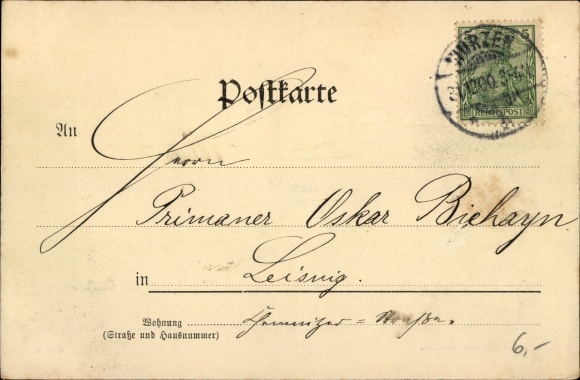 5 5
WURZEN
REICHSPOST
Postkarte
An
Herrn
Primaner Oskar Biehayn.
in Leisnig.
Wohnung Chemnitzer = Straße.
(Straße und Hausnummer)
6,-